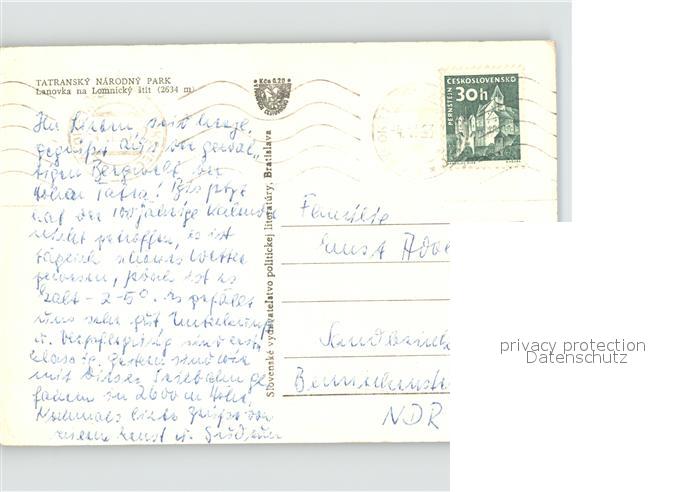 TATRANSKÝ NÁRODNÝ PARK
Lanovka na Lomnický štít (2634 m)
Kčs 0,20
ČESKOSLOVENSKO
30h
PERNŠTEJN
Slovenské vydavateľstvo politickej literatúry, Bratislava
gegrüßt aus der gewal-
tigen Bergwelt der
Hohen Tatra! Bis jetzt
hat der 100jährige Kalender
nicht getroffen, es ist
täglich schönes Wetter
gewesen, jedoch ist es
kalt - 2-5°. Es gefällt
uns sehr gut, Unterkunft
u. Verpflegung sind erst-
klassig. Gestern sind wir
mit dieser Seilbahn ge-
fahren in 2600 m Höhe.
Nochmals liebe Grüße von
Ernst u.
Familie
Ernst
NDR
privacy protection
Datenschutz